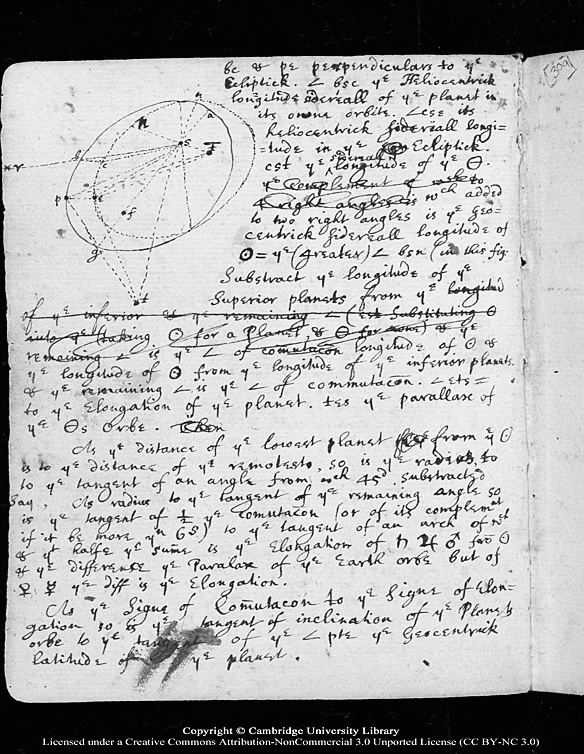 bc & pe perpendiculars to yᵉ
Ecliptick. ∠ bsc yᵉ Heliocentrick
longitude sidereall of yᵉ planet in
its owne orbite. ∠cse its
heliocentrick sidereall longi=
=tude in yᵉ Ecliptick.
cst yᵉ sidereal longitude of yᵉ ⊖.
yᵉ Complement of wch to
4 right angles is wch added
to two right angles is yᵉ Geo=
centrick sidereall longitude of
⊙ = yᵉ (greater) ∠ bsn (in this fig:
Substract yᵉ longitude of yᵉ
Superior planets from yᵉ longitud
of yᵉ inferior & yᵉ remaining ∠ (est Substituting ⊖
into yᵉ (taking ⊙ for a Planet & ⊖ for) & yᵉ
remaining ∠ is yᵉ ∠ of comutacōn longitude of ⊖ &
yᵉ longitude of ⊙ from yᵉ longitude of yᵉ inferior planets.
& yᵉ remaining ∠ is yᵉ ∠ of commutacōn. ∠ ets =
to yᵉ Elongation of yᵉ planet. tes yᵉ parallax of
yᵉ ⊖s Orbe. Then
As yᵉ distance of yᵉ lowest planet from yᵉ ⊙
is to yᵉ distance of yᵉ remotests, so is yᵉ radius to
to yᵉ tangent of an angle from wch 45ᵈ. substracted
Say, As radius to yᵉ tangent of yᵉ remaining angle so
is yᵉ tangent of ½ yᵉ comutacōn (or of its complemt
if it be more yⁿ 6s) to yᵉ tangent of an arch of wch
& yᵗ halfe yᵉ summe is yᵉ Elongation of ♄ ♃ ♂ fro ⊙
& yᵉ difference yᵉ Paralax of yᵉ Earth orbe but of
♀ ☿ yᵉ diff is yᵉ Elongation.
As yᵉ Signe of Comutacon to yᵉ Signe of Elon=
gation so is yᵉ tangent of inclination of yᵉ Planets
orbe to yᵉ tangent of yᵉ ∠ pte yᵉ Geocentrick
latitude of yᵉ planet.
[309]
Copyright © Cambridge University Library
Licensed under a Creative Commons Attribution-NonCommercial 3.0 Unported License (CC BY-NC 3.0)